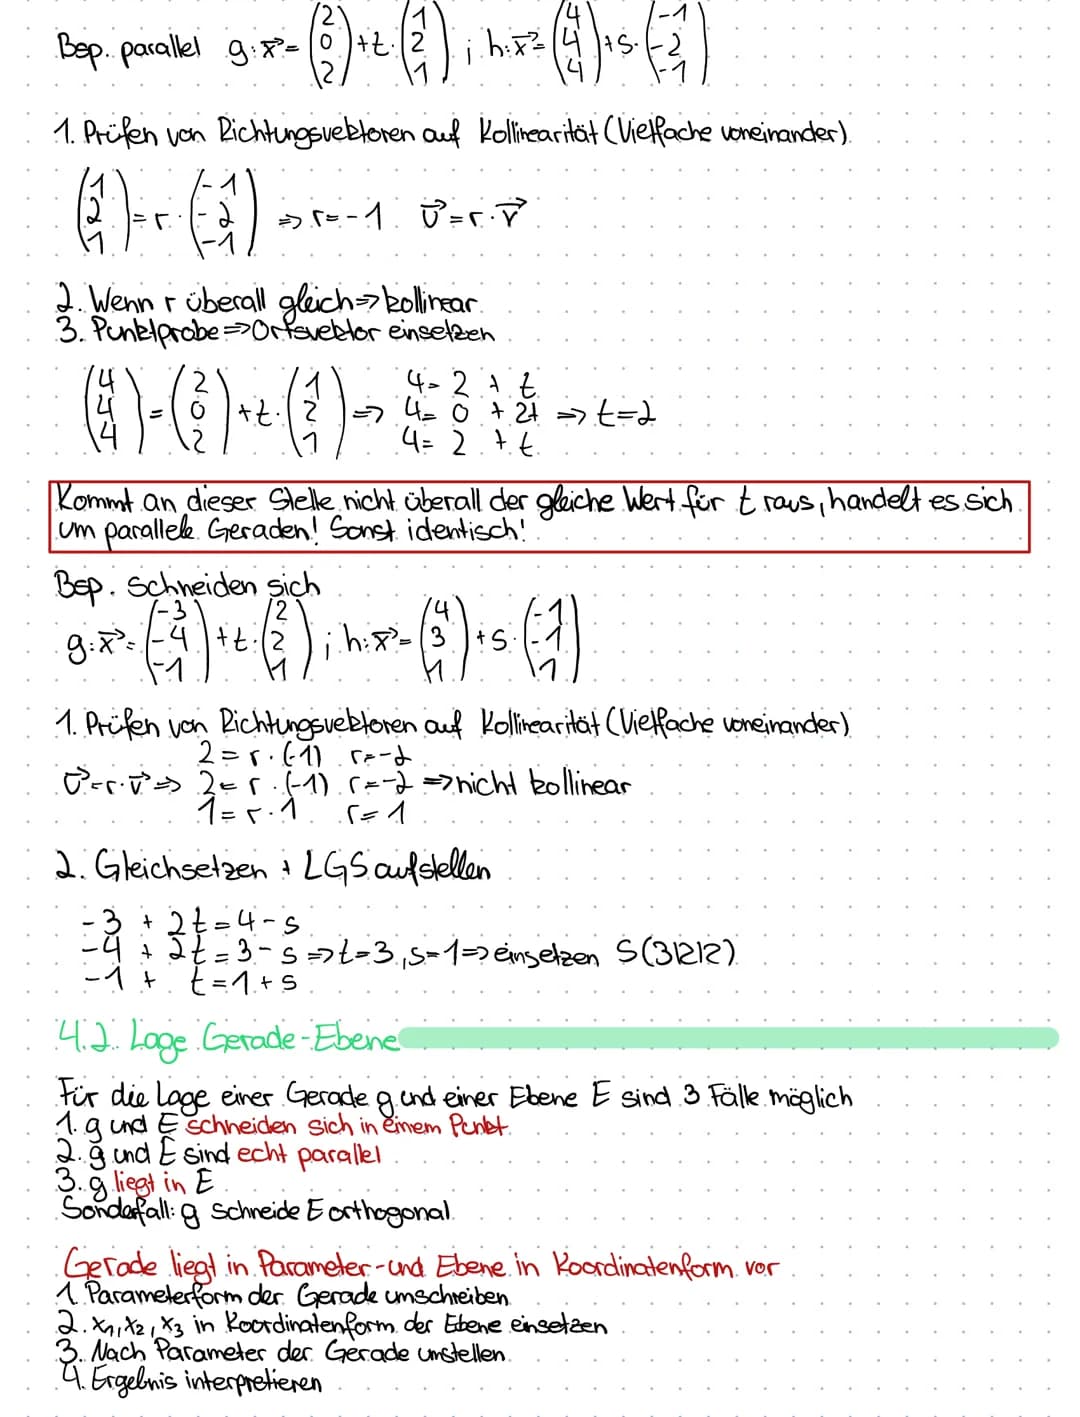 Bsp. parallel g: x⃗ = (2 0 2) + t · (1 2 1) ; h: x⃗ = (4 4 4) + s · (-1 -2 -1)
1. Prüfen von Richtungsvektoren auf Kollinearität (Vielfache voneinander)
(1 2 1) = r · (-1 -2 -1) => r = -1 u⃗ = r · v⃗
2. Wenn r überall gleich => kollinear
3. Punktprobe => Ortsvektor einsetzen
(4 4 4) = (2 0 2) + t · (1 2 1) => 4 = 2 + t
4 = 0 + 2t => t = 2
4 = 2 + t
Kommt an dieser Stelle nicht überall der gleiche Wert für t raus, handelt es sich
um parallele Geraden! Sonst identisch!
Bsp. Schneiden sich
g: x⃗ = (-3 -4 -1) + t · (2 2 1) ; h: x⃗ = (4 3 1) + s · (-1 -1 1)
1. Prüfen von Richtungsvektoren auf Kollinearität (Vielfache voneinander)
2 = r · (-1) r = -2
u⃗ = r · v⃗ => 2 = r · (-1) r = -2 => nicht kollinear
1 = r · 1 r = 1
2. Gleichsetzen + LGS aufstellen
-3 + 2t = 4 - s
-4 + 2t = 3 - s => t = 3, s = 1 => einsetzen S(3|2|2)
-1 + t = 1 + s
4.2. Lage Gerade-Ebene
Für die Lage einer Gerade g und einer Ebene E sind 3 Fälle möglich
1. g und E schneiden sich in einem Punkt
2. g und E sind echt parallel
3. g liegt in E
Sonderfall: g schneide E orthogonal
Gerade liegt in Parameter- und Ebene in Koordinatenform vor
1. Parameterform der Gerade umschreiben
2. x₁, x₂, x₃ in Koordinatenform der Ebene einsetzen
3. Nach Parameter der Gerade umstellen
4. Ergebnis interpretieren